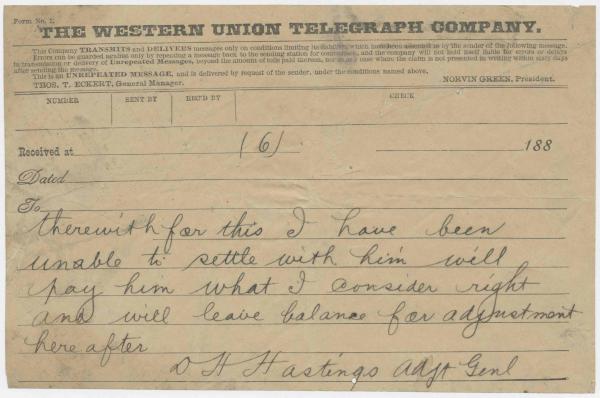 Form No. 1.
THE WESTERN UNION TELEGRAPH COMPANY.
This Company TRANSMITS and DELIVERS messages only on conditions limiting its liability, which have been assented to by the sender of the following message.
Errors can be guarded against only by repeating a message back to the sending station for comparison, and the company will not hold itself liable for errors or delays
in transmission or delivery of Unrepeated Messages, beyond the amount of tolls paid thereon, nor in any case where the claim is not presented in writing within sixty days
after sending the message.
This is an UNREPEATED MESSAGE, and is delivered by request of the sender, under the conditions named above.
THOS. T. ECKERT, General Manager. NORVIN GREEN, President.
NUMBER SENT BY REC'D BY CHECK
Received at (6) 188
Dated
To
therewith for this I have been
unable to settle with him will
pay him what I consider right
and will leave balance for adjustment
here after
D H Hastings Adjt Genl